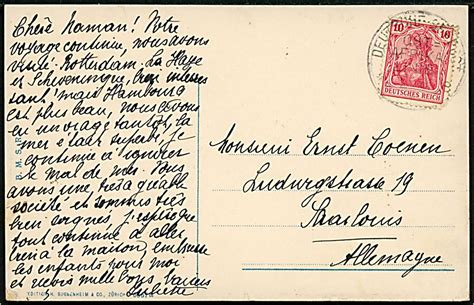 Chère Maman! Votre
voyage continue, nous avons
visité Rotterdam, La Haye
et Scheveningue, bien
sans mais Hambourg
est plus beau, nous avons
eu un voyage la
mer superbe, je
continue à ignorer
le mal de mer. Nous
avons une très agréable
société et sommes très
bien soignés, j'espère que
tout continue d'aller
bien à la maison, embrasse
les enfants pour moi
et reçois mille bons baisers
Juliette
B. M. S. R.
EDITION H. GUGGENHEIM & CO., ZÜRICH
10 10
DEUTSCHES REICH
DEUTSCHE
Monsieur Ernst Coenen
Ludwigstrasse 19
Saarlouis
Allemagne